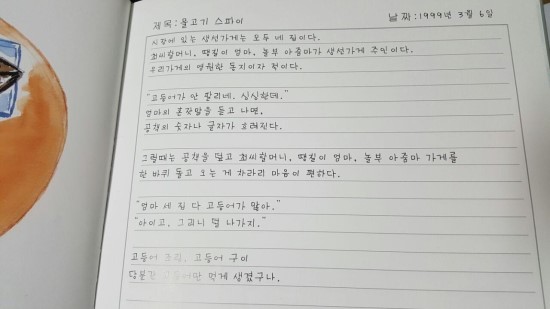 제목:물고기 스파이
날짜:1999년 3월 6일
시장에 있는 생선가게는 모두 네 집이다.
최씨할머니, 땡칠이 엄마, 놀부 아줌마가 생선가게 주인이다.
우리가게의 영원한 동지이자 적이다.
"고등어가 안 팔리네, 싱싱한데."
엄마의 혼잣말을 듣고 나면,
공책의 숫자나 글자가 흐려진다.
그럴때는 공책을 덮고 최씨할머니, 땡칠이 엄마, 놀부 아줌마 가게를
한 바퀴 돌고 오는 게 차라리 마음이 편하다.
"엄마 세 집 다 고등어가 많아."
"아이고, 그러니 덜 나가지."
고등어 조림, 고등어 구이
당분간 고등어만 먹게 생겼구나.